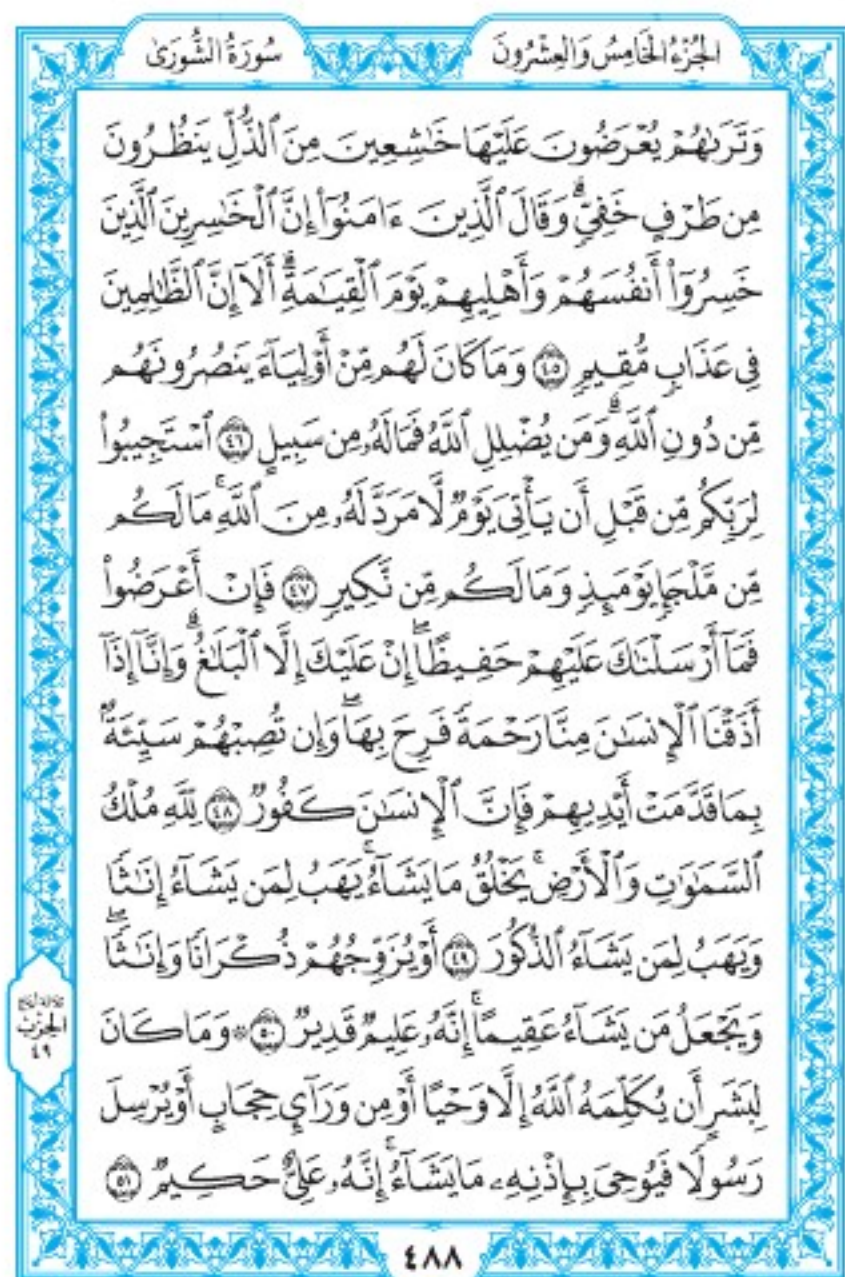 الجُزْءُ الخَامِسُ وَالعِشْرُونَ
سُورَةُ الشُّورَىٰ
وَتَرَىٰهُمْ يُعْرَضُونَ عَلَيْهَا خَٰشِعِينَ مِنَ ٱلذُّلِّ يَنظُرُونَ
مِن طَرْفٍ خَفِيٍّۗ وَقَالَ ٱلَّذِينَ ءَامَنُوٓاْ إِنَّ ٱلْخَٰسِرِينَ ٱلَّذِينَ
خَسِرُوٓاْ أَنفُسَهُمْ وَأَهْلِيهِمْ يَوْمَ ٱلْقِيَٰمَةِۗ أَلَآ إِنَّ ٱلظَّٰلِمِينَ
فِى عَذَابٍ مُّقِيمٍ ٤٥ وَمَا كَانَ لَهُم مِّنْ أَوْلِيَآءَ يَنصُرُونَهُم
مِّن دُونِ ٱللَّهِۗ وَمَن يُضْلِلِ ٱللَّهُ فَمَا لَهُۥ مِن سَبِيلٍ ٤٦ ٱسْتَجِيبُواْ
لِرَبِّكُم مِّن قَبْلِ أَن يَأْتِىَ يَوْمٌ لَّا مَرَدَّ لَهُۥ مِنَ ٱللَّهِۚ مَا لَكُم
مِّن مَّلْجَإٍ يَوْمَئِذٍ وَمَا لَكُم مِّن نَّكِيرٍ ٤٧ فَإِنْ أَعْرَضُواْ
فَمَآ أَرْسَلْنَٰكَ عَلَيْهِمْ حَفِيظًاۖ إِنْ عَلَيْكَ إِلَّا ٱلْبَلَٰغُۗ وَإِنَّآ إِذَآ
أَذَقْنَا ٱلْإِنسَٰنَ مِنَّا رَحْمَةً فَرِحَ بِهَاۖ وَإِن تُصِبْهُمْ سَيِّئَةٌۢ
بِمَا قَدَّمَتْ أَيْدِيهِمْ فَإِنَّ ٱلْإِنسَٰنَ كَفُورٌ ٤٨ لِّلَّهِ مُلْكُ
ٱلسَّمَٰوَٰتِ وَٱلْأَرْضِۚ يَخْلُقُ مَا يَشَآءُۚ يَهَبُ لِمَن يَشَآءُ إِنَٰثًا
وَيَهَبُ لِمَن يَشَآءُ ٱلذُّكُورَ ٤٩ أَوْ يُزَوِّجُهُمْ ذُكْرَانًا وَإِنَٰثًاۖ
وَيَجْعَلُ مَن يَشَآءُ عَقِيمًاۚ إِنَّهُۥ عَلِيمٌ قَدِيرٌ ٥٠ ۞ وَمَا كَانَ
لِبَشَرٍ أَن يُكَلِّمَهُ ٱللَّهُ إِلَّا وَحْيًا أَوْ مِن وَرَآئِ حِجَابٍ أَوْ يُرْسِلَ
رَسُولًا فَيُوحِىَ بِإِذْنِهِۦ مَا يَشَآءُۚ إِنَّهُۥ عَلِىٌّ حَكِيمٌ ٥١
الحِزْبُ
٤٩
٤٨٨